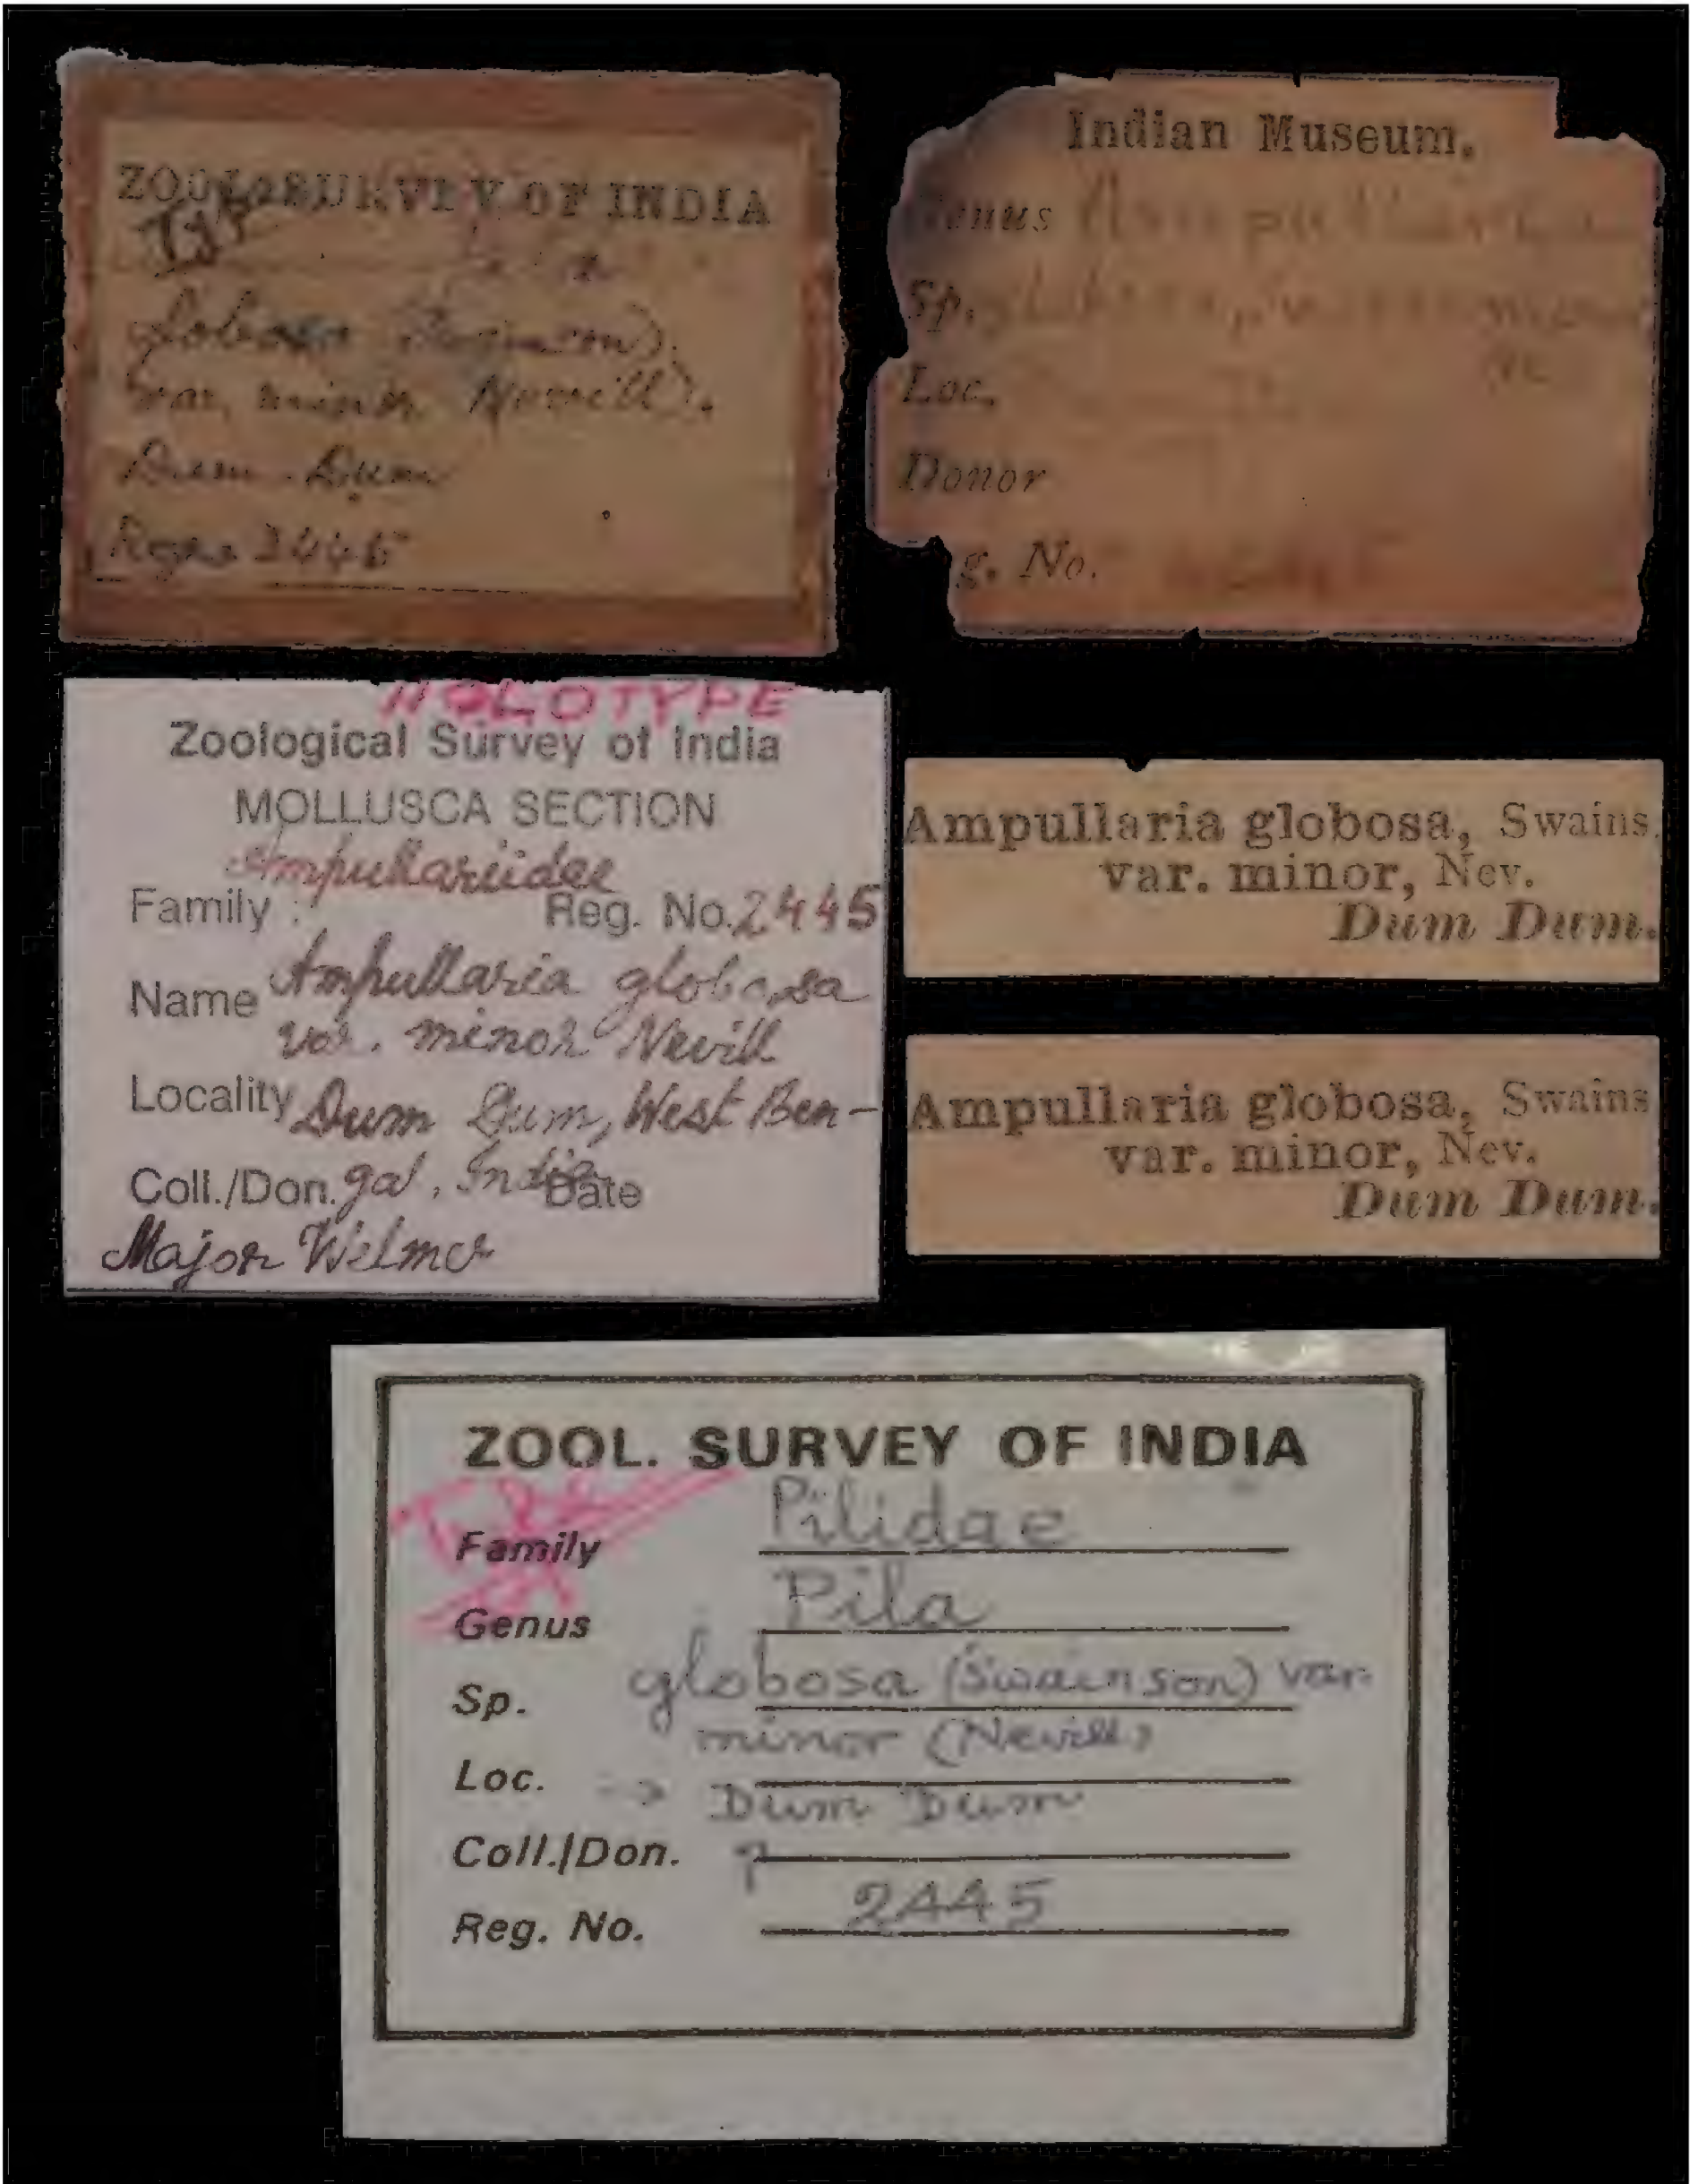 ZOOL. SURVEY OF INDIA
Type
globosa (Swainson).
(var. minor Nevill).
Dum-Dum
2445
Indian Museum.
Genus
Sp. globosa, minor
Loc.
Donor
g. No.
HOLOTYPE
Zoological Survey of India
MOLLUSCA SECTION
Ampullariidae
Family : Reg. No. 2445
Name Ampullaria globosa
var. minor Nevill
Locality Dum Dum, West Ben-
Coll./Don. gal, India Date
Major Wilmer
Ampullaria globosa, Swains.
var. minor, Nev.
Dum Dum.
Ampullaria globosa, Swains
var. minor, Nev.
Dum Dum.
ZOOL. SURVEY OF INDIA
Family Pilidae
Genus Pila
Sp. globosa (Swainson) var.
minor (Nevill)
Loc. -> Dum Dum
Coll./Don. ?
Reg. No. 2445